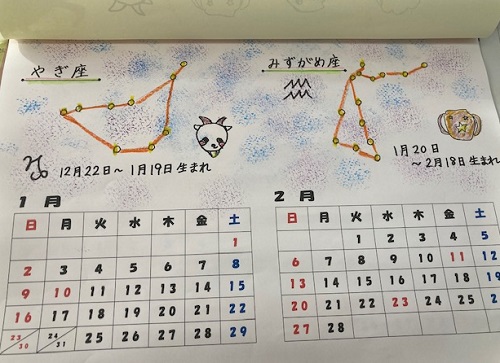 やぎ座
みずがめ座
♑
♒
12月22日～1月19日生まれ
1月20日
～2月18日生まれ
1月
日 月 火 水 木 金 土
1
2 3 4 5 6 7 8
9 10 11 12 13 14 15
16 17 18 19 20 21 22
23/30 24/31 25 26 27 28 29
2月
日 月 火 水 木 金 土
1 2 3 4 5
6 7 8 9 10 11 12
13 14 15 16 17 18 19
20 21 22 23 24 25
27 28